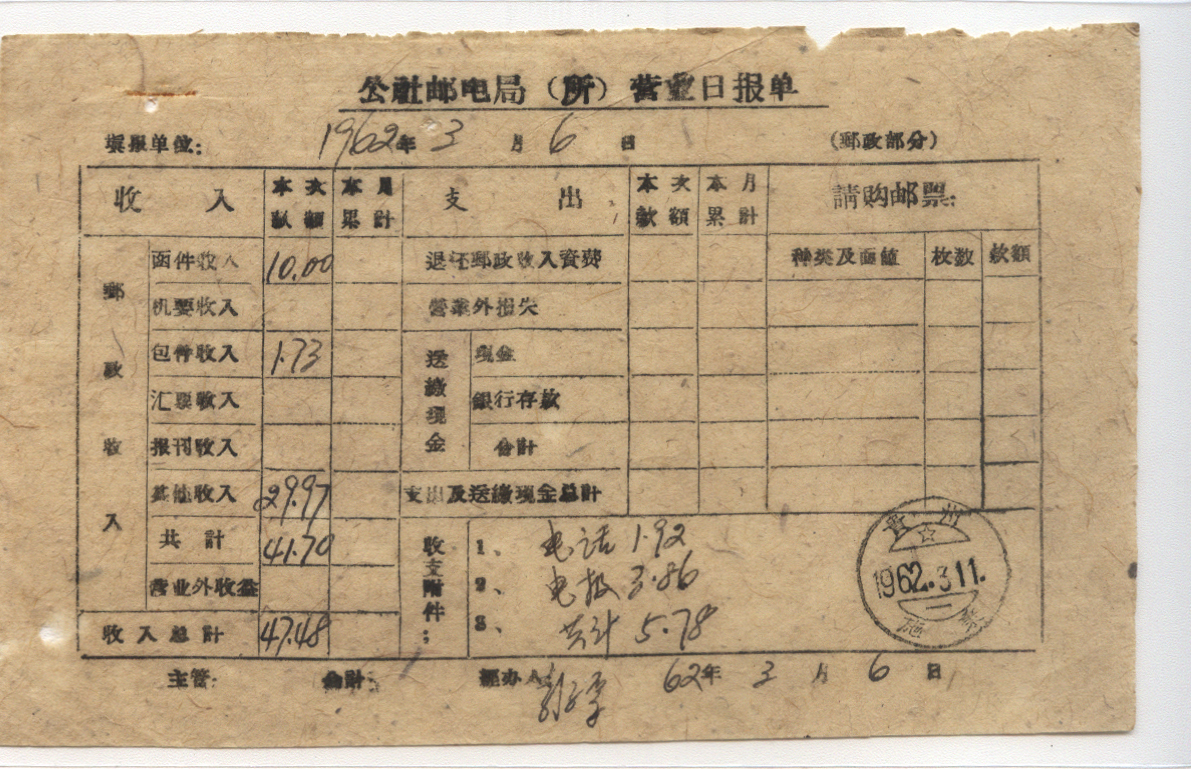 公社邮电局（所）营业日报单
填报单位： 1962年 3 月 6 日 （郵政部分）
收 入 本次款額 本月累計 支 出 本次款額 本月累計 請购邮票：
郵政收入
函件收入 10.00 退还郵政收入資费 种类及面值 枚数 款額
机要收入 营業外損失
包件收入 1.73 送繳現金 現金
汇票收入 銀行存款
报刊收入 合計
其他收入 29.97 支出及送繳現金总計
共計 41.70 收支附件： 1、 电话 1.92
营业外收益 2、 电报 3.86
收入总計 47.48 3、 共计 5.78
貴州
1962.3.11.
二
主管： 会計： 經办人： 62年 3 月 6 日